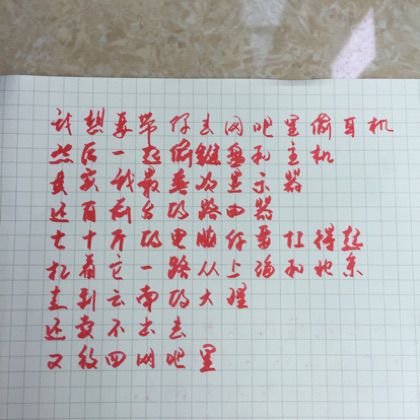 我想要带你去网吧里偷耳机
然后一起偷键盘和主机
其实我最喜欢显示器
还有前台的路由器
七十斤的电脑你要扛得起
扛着它一路从上海和北京
走到云南的大理
还卖不出去
又放回网吧里